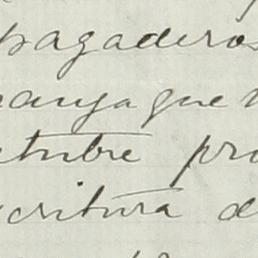 pagaderos
que
ctubre pro
critura d